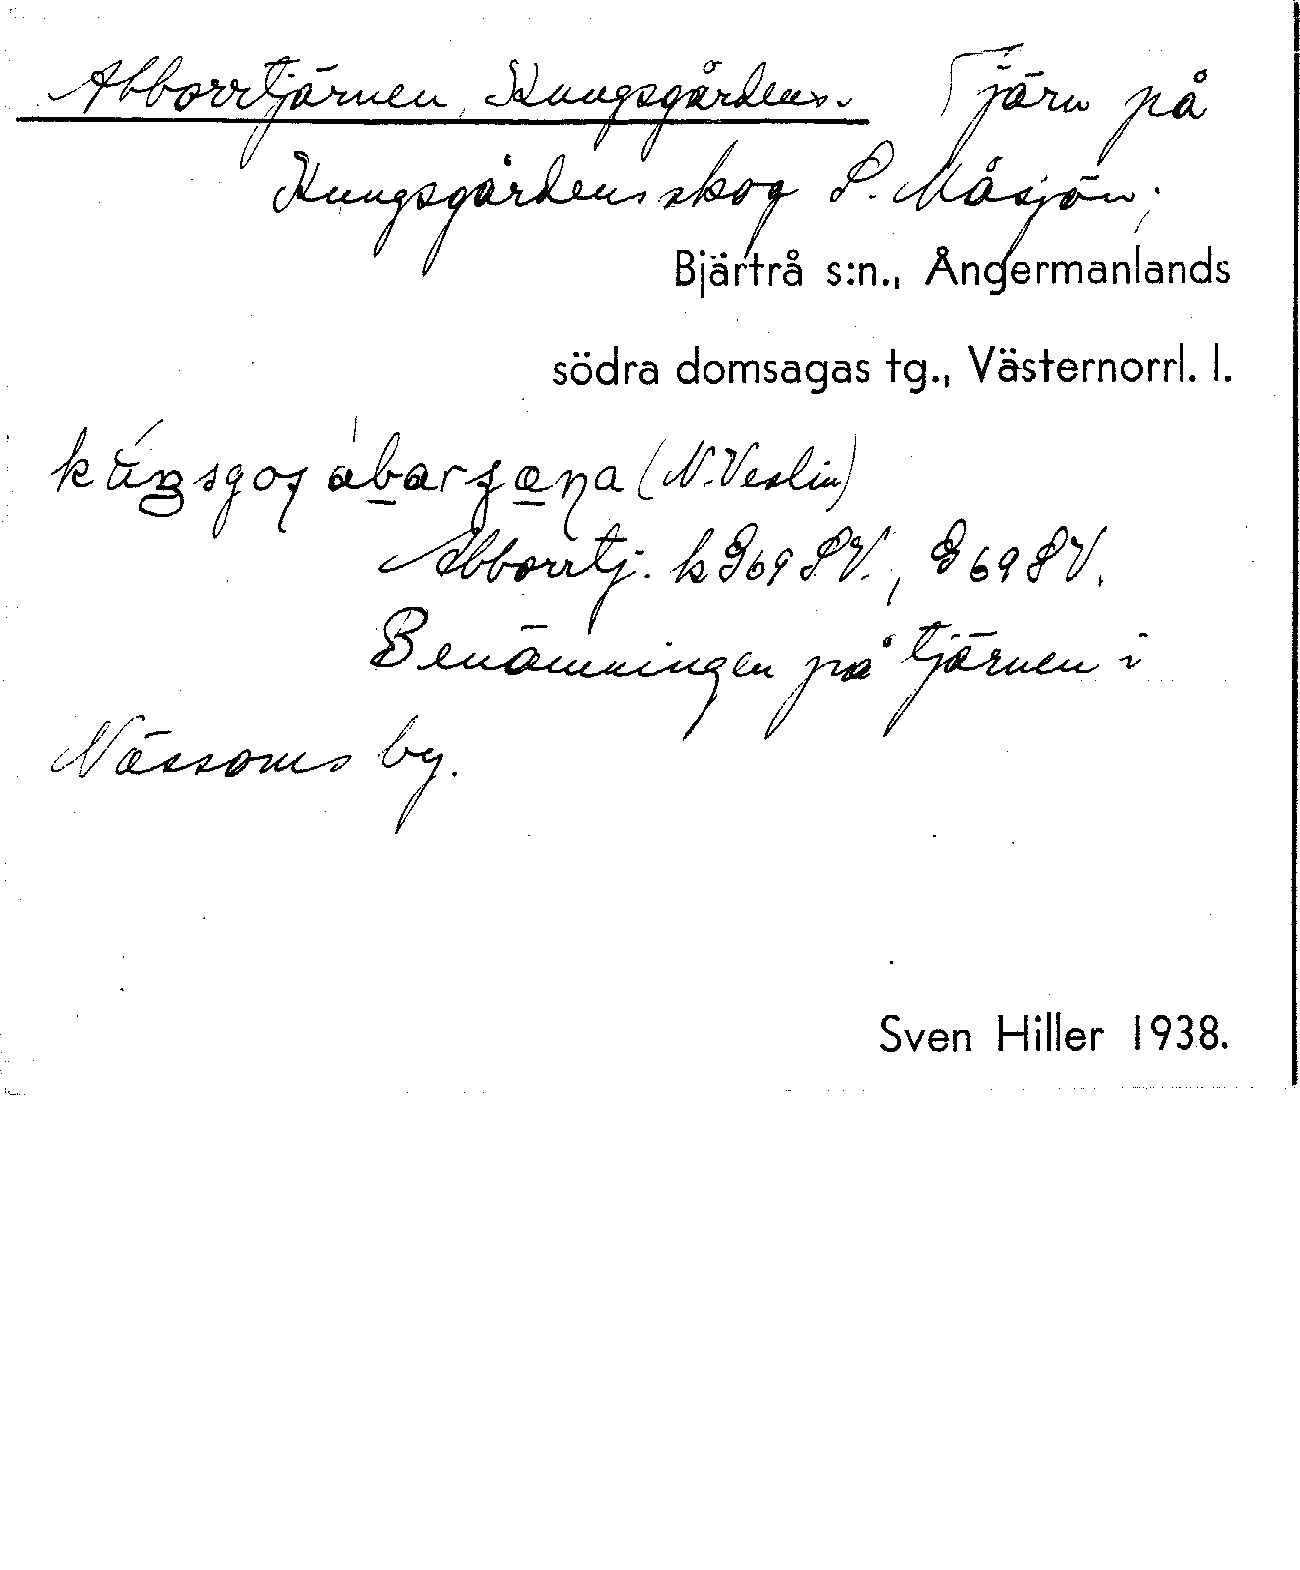 Abborrtjärnen, Kungsgårdens. Tjärn på
Kungsgårdens skog S. Måsjön;
Bjärtrå s:n., Ångermanlands
södra domsagas tg., Västernorrl. l.
(N. Veslin)
Abborrtj. k G69 SV., G 69 SV.
Benämningen på tjärnen i
Nässoms by.
Sven Hiller 1938.